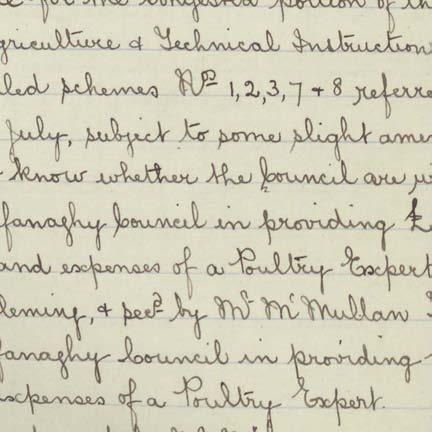 for the congested portion of th
griculture & Technical Instruction
led schemes Nos 1, 2, 3, 7 & 8 referre
July, subject to some slight ame
know whether the Council are
fanaghy Council in providing £
and expenses of a Poultry Expert
leming, & secd by Mr McMullan
fanaghy Council in providing
expenses of a Poultry Expert.